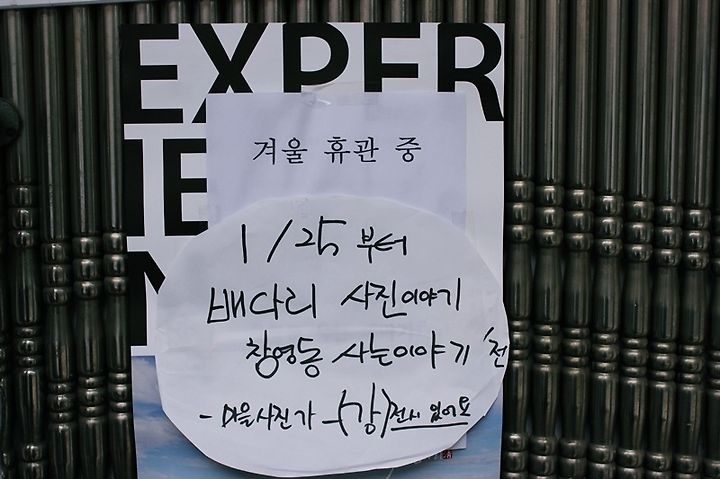 EXPER
IE
겨울 휴관 중
1/25부터
배다리 사진이야기
창영동 사는이야기 '전
- 마을사진가 -(강) 전시 있어요